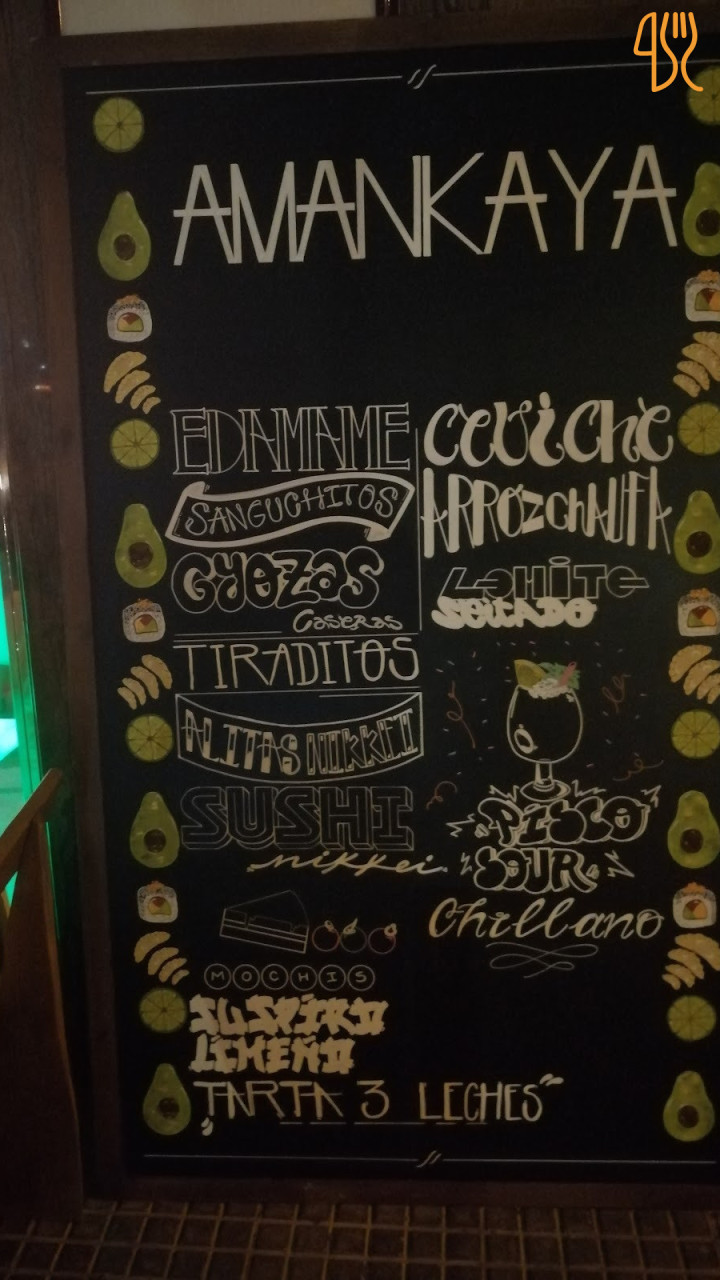 AMANKAYA
EDAMAME
SANGUCHITOS
GYOZAS
Caseras
TIRADITOS
ALITAS NIKKEI
SUSHI
nikkei
MOCHIS
SUSPIRO
LIMEÑO
TARTA 3 LECHES
CEVICHE
ARROZ CHAUFA
LOMITO
SALTADO
PISCO
SOUR
Chillano